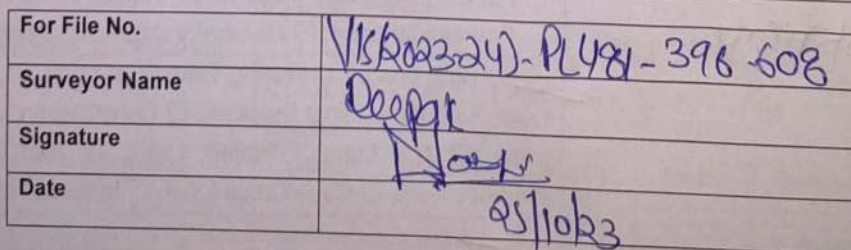 For File No. VIS(2023-24)-PL481-396-608
Surveyor Name Deepak
Signature
Date 25/10/23